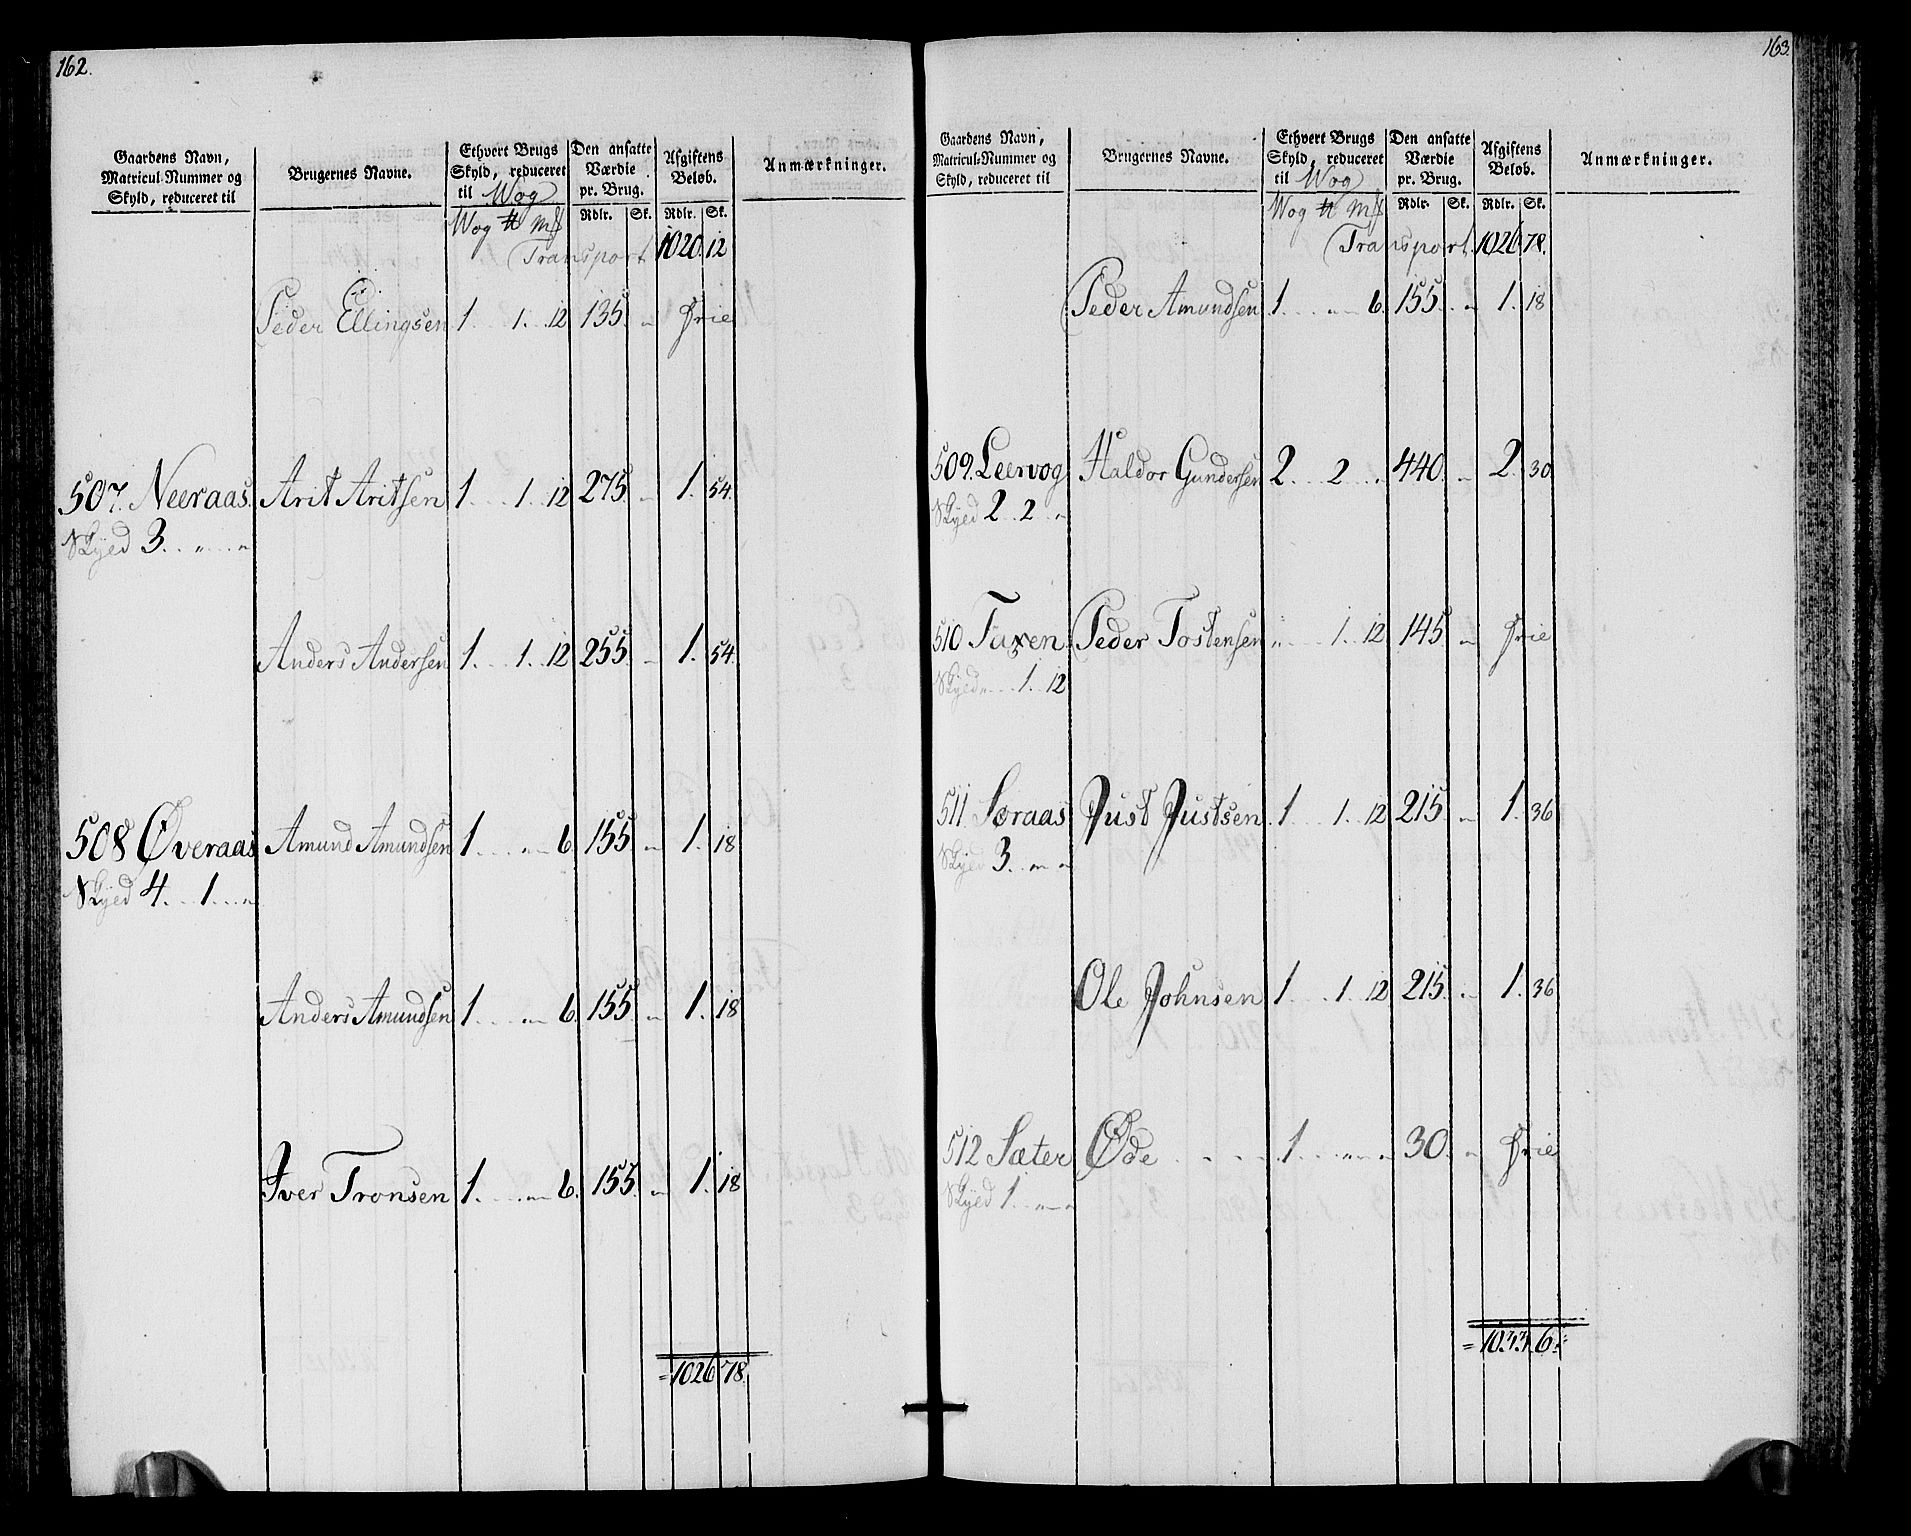 162.
Gaardens Navn, Matricul-Nummer og Skyld, reduceret til | Brugernes Navne. | Ethvert Brugs Skyld, reduceret til Wog | Den ansatte Værdie pr. Brug. | Afgiftens Beløb. | Anmærkninger.
Wog ℔ Mk | Rdlr. Sk. | Rdlr. Sk.
Transport 1020. 12
Peder Ellingsen 1. 1. 12 135. „ Frie
507. Neeraas. Arit Aritsen 1 1. 12 275. „ 1. 54.
Skyld 3. „ „
Anders Andersen 1. 1. 12 255. „ 1. 54.
508 Øveraas Amund Amundsen 1. „ 6. 155. „ 1. 18
Skyld 4. 1. „
Anders Amundsen 1. „ 6. 155. „ 1. 18
Iver Tronsen 1. „ 6. 155. „ 1. 18
=1026 78.
163.
Gaardens Navn, Matricul-Nummer og Skyld, reduceret til | Brugernes Navne. | Ethvert Brugs Skyld, reduceret til Wog | Den ansatte Værdie pr. Brug. | Afgiftens Beløb. | Anmærkninger.
Wog ℔ Mk | Rdlr. Sk. | Rdlr. Sk.
Transport 1026 78.
Peder Amundsen 1. „ 6. 155. „ 1. 18
509. Leervog Haldor Gundersen 2. 2 „ 440. „ 2. 30
Skyld 2. 2 „
510 Taxen Peder Tostensen „ 1. 12 145 „ Frie
Skyld „ 1. 12
511. Soraas Just Justsen 1 1. 12 215. „ 1. 36
Skyld 3. „ „
Ole Johnsen 1. 1. 12 215. „ 1. 36
512 Sæter Øde 1. „ „ 30. „ Frie
Skyld 1. „ „
=1033 6.=